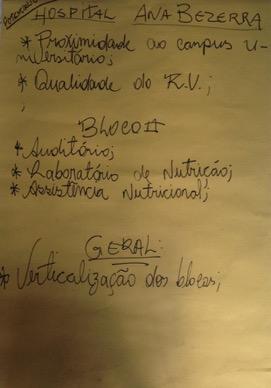 HOSPITAL ANA BEZERRA
* Proximidade ao campus u-
niversitário;
* Qualidade do R.V.;
;
BLOCO II
* Auditório;
* Laboratório de Nutrição;
* Assistência Nutricional;
GERAL:
* Verticalização dos blocos;